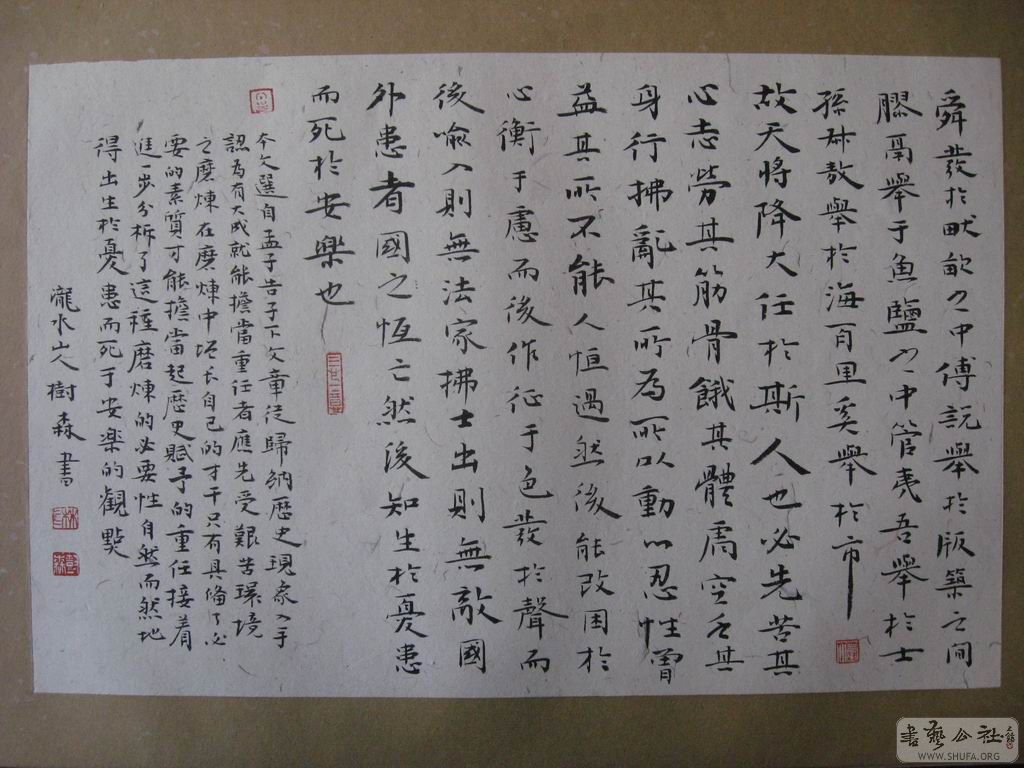 舜發於畎畝之中傅説舉於版築之间
膠鬲舉于魚鹽之中管夷吾舉於士
孫叔敖舉於海百里奚舉於市
故天將降大任於斯人也必先苦其
心志勞其筋骨餓其體膚空乏其
身行拂亂其所為所以動心忍性曾
益其所不能人恒過然後能改困於
心衡于慮而後作征于色發於聲而
後喻入則無法家拂士出則無敵國
外患者國之恆亡然後知生於憂患
而死於安樂也
本文選自孟子告子下文章從歸納歷史現象入手
認為有大成就能擔當重任者應先受艱苦環境
之磨煉在磨煉中增长自己的才干只有具備了必
要的素質才能擔當起歷史賦予的重任接着
進一步分析了這種磨煉的必要性自然而然地
得出生於憂患而死于安樂的觀點
瀧水山人樹森書
書藝公社
WWW.SHUFA.ORG